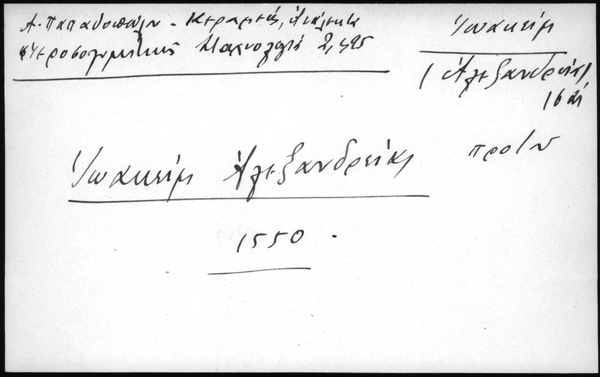 Α. Παπαδοπούλου - Κεραμέως, Ἀνάλεκτα
Ἱεροσολυμιτικῆς Σταχυολογίας 2, 495
Ἰωακείμ
(Ἀλεξανδρείας)
16 αἰ
πρῶτον
Ἰωακείμ Ἀλεξανδρείας
1550.